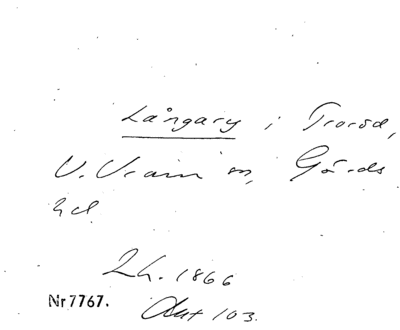 Långary i Troröd,
V. Vram sn, Gärds
hd
2h. 1866
Nr 7767. Aut 103.